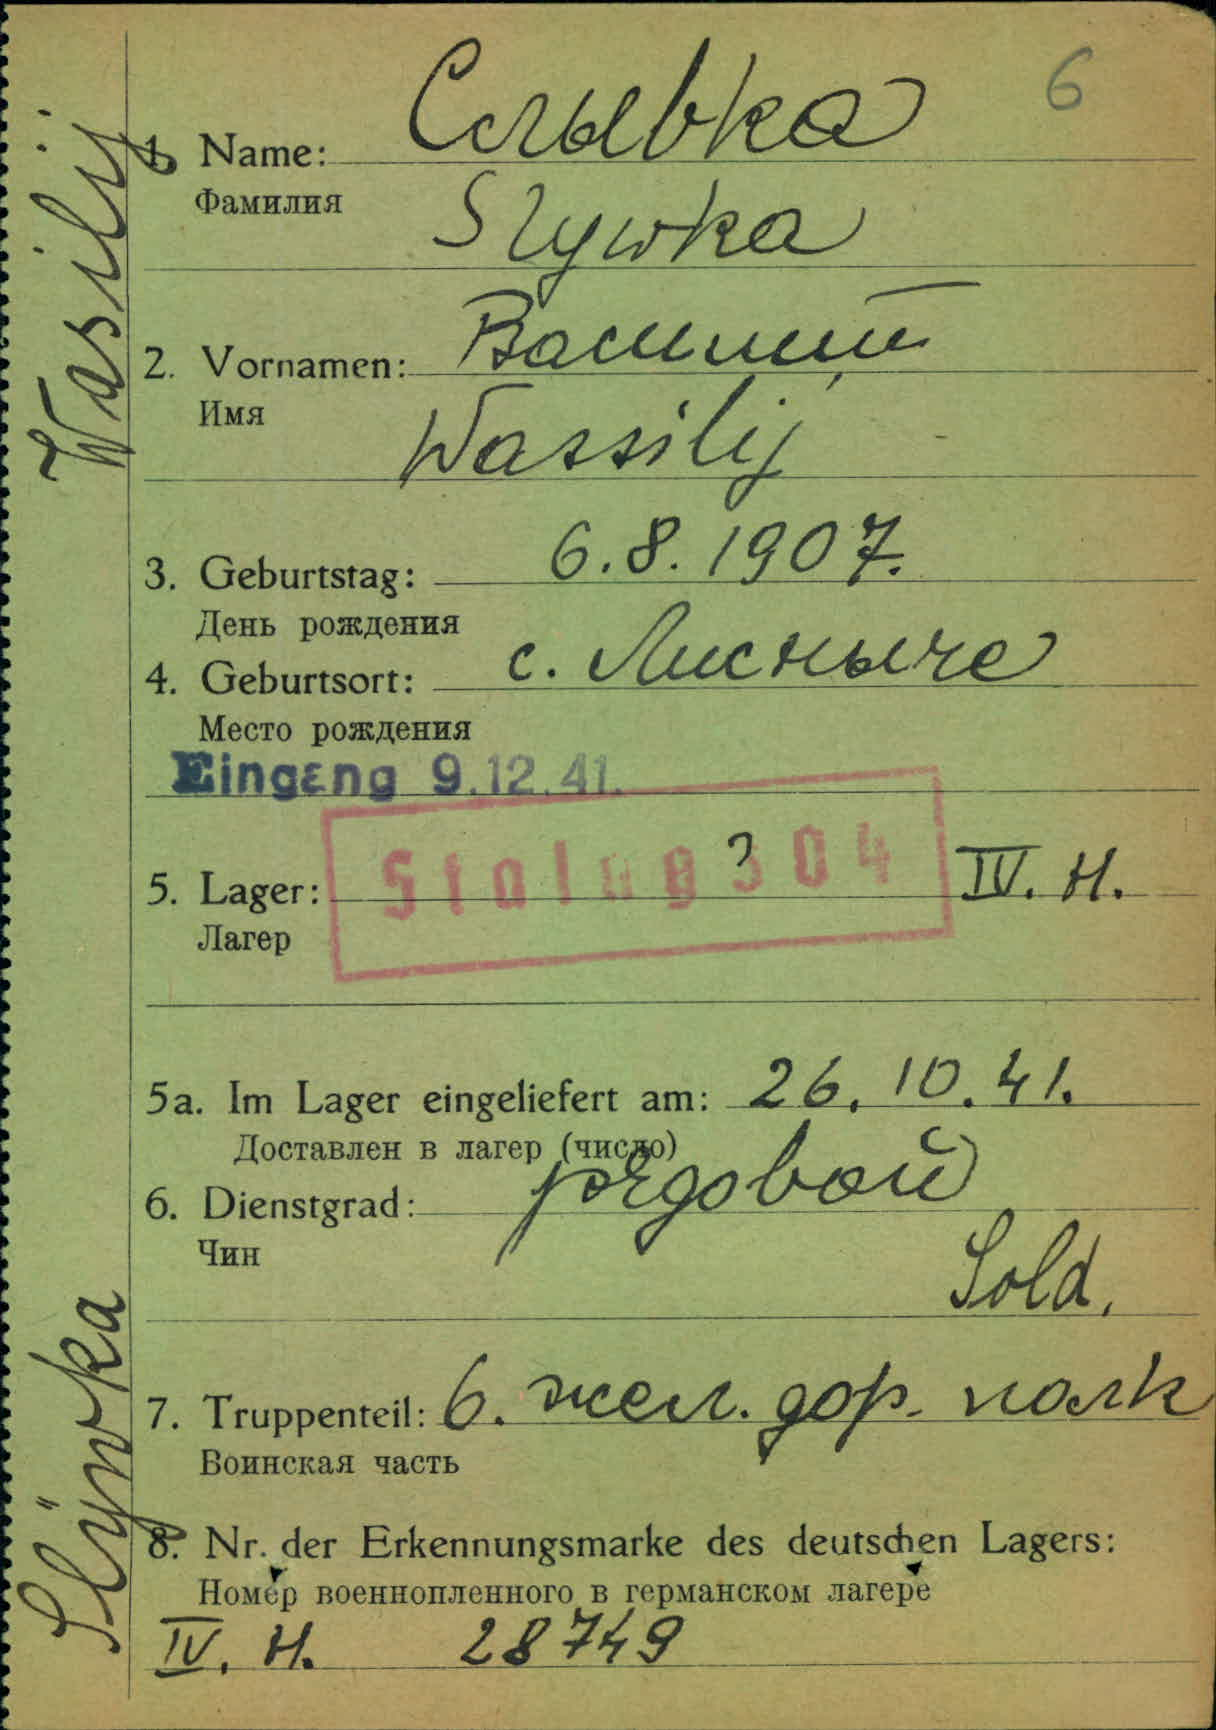 6
1. Name: Слывка
Фамилия
Slywka
2. Vornamen: Василий
Имя
Wassilij
3. Geburtstag: 6.8.1907.
День рождения
4. Geburtsort: с. Лисныче
Место рождения
Eingang 9.12.41.
5. Lager: Stalag 304 IV. H.
Лагер
5a. Im Lager eingeliefert am: 26.10.41.
Доставлен в лагер (число)
6. Dienstgrad: рядовой
Чин
Sold.
7. Truppenteil: 6. жел. дор. полк
Воинская часть
8. Nr. der Erkennungsmarke des deutschen Lagers:
Номер военнопленного в германском лагере
IV. H. 28749
Slÿwka Wasilij